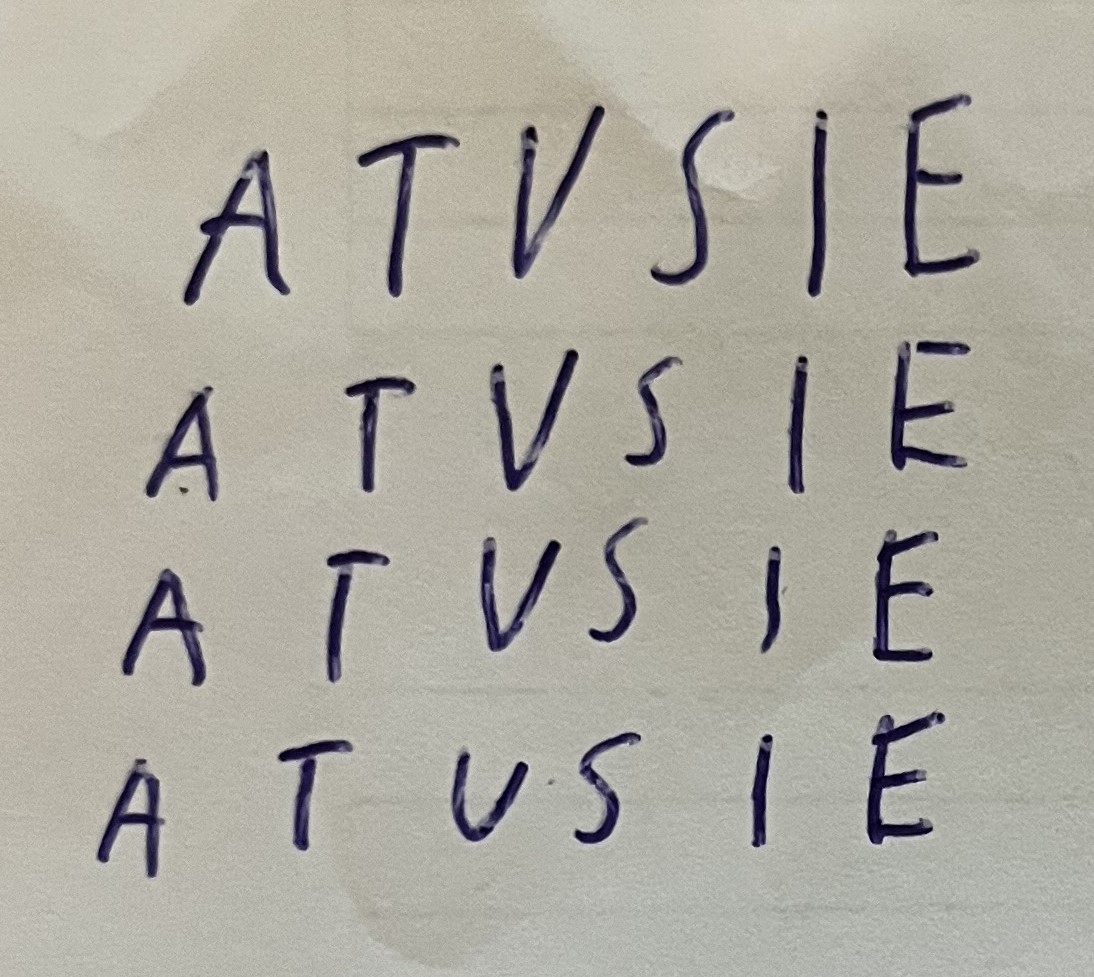 A T V S I E
A T V S I E
A T V S I E
A T U S I E